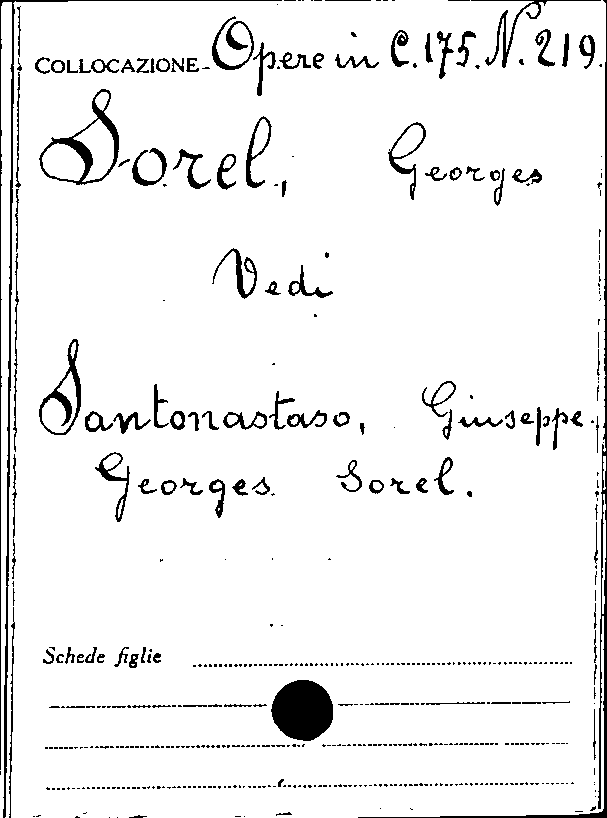 COLLOCAZIONE - Opere in C.175.N.219.
Sorel, Georges
Vedi
Santonastaso, Giuseppe.
Georges Sorel.
Schede figlie